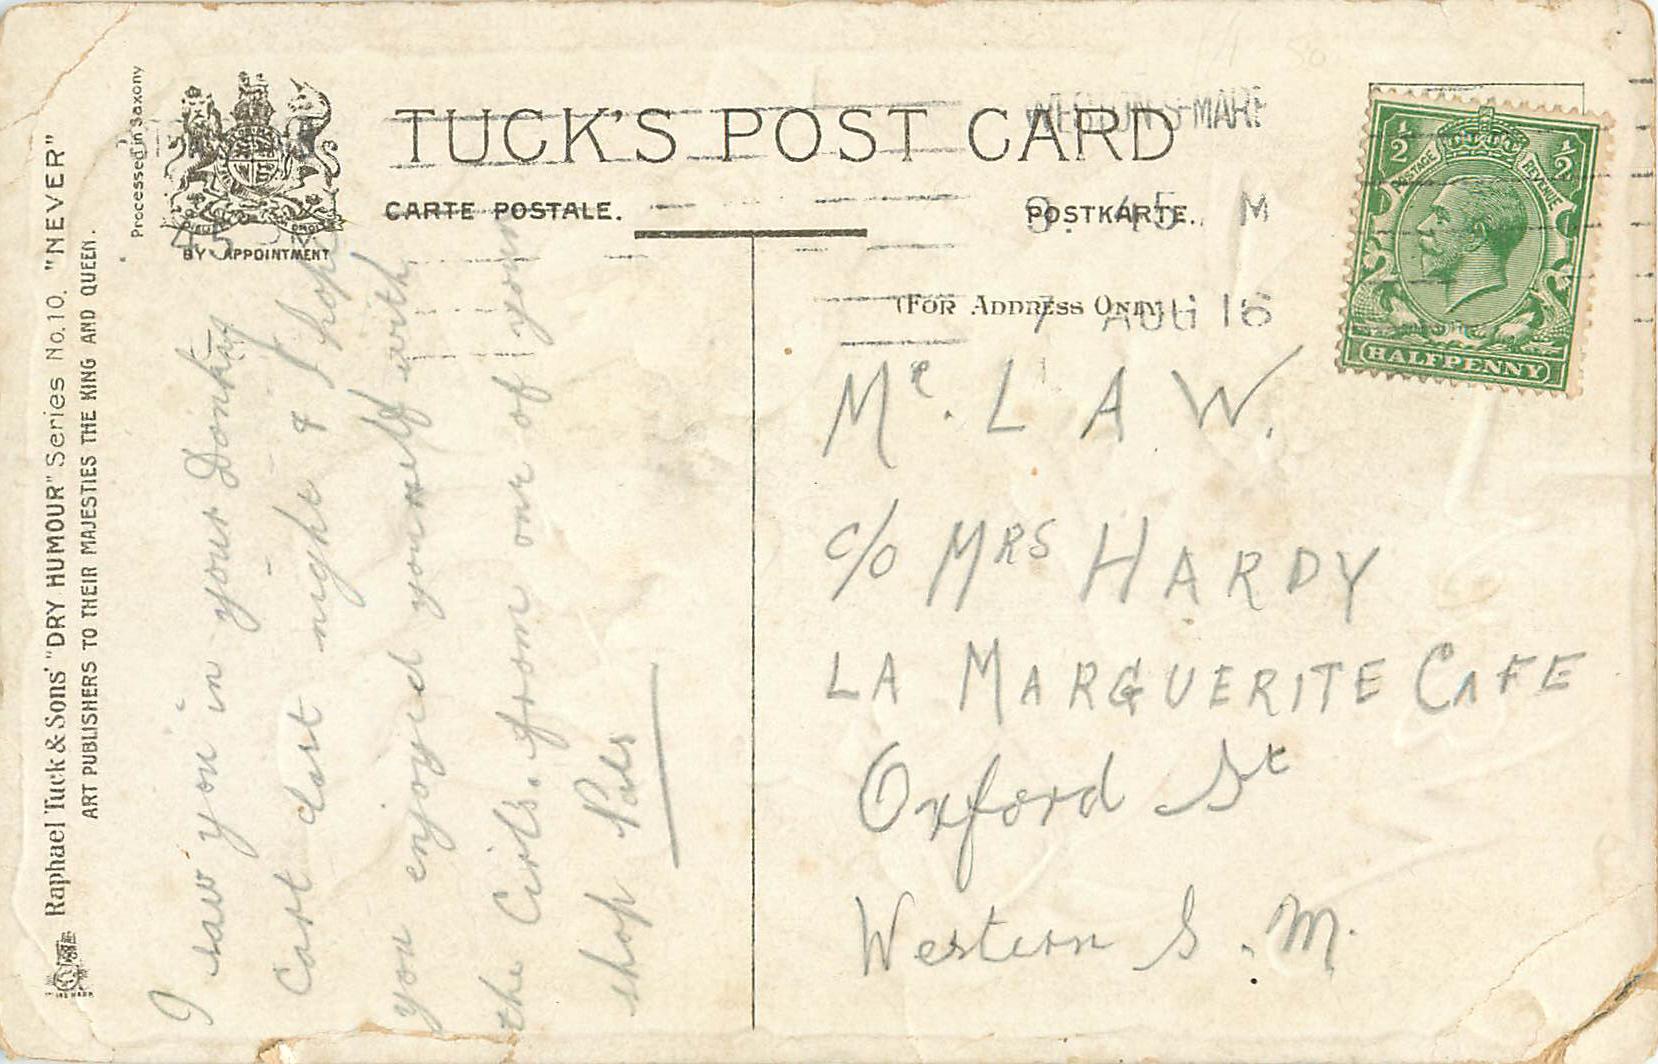 TUCK'S POST CARD
CARTE POSTALE.
POSTKARTE.
(FOR ADDRESS ONLY)
BY APPOINTMENT
Processed in Saxony
Raphael Tuck & Sons' "DRY HUMOUR" Series No. 10. "NEVER"
ART PUBLISHERS TO THEIR MAJESTIES THE KING AND QUEEN.
WESTON-S-MARE
8.45 M
7 AUG 16
45
½ ½
POSTAGE REVENUE
HALFPENNY
I saw you in your Donkay
Cart last night & I hope
you enjoyed yourself with
the Cirls. from one of your
shop Pals
Mr. L A W.
C/O MRS HARDY
LA MARGUERITE CAFE
Oxford St
Western S. M.